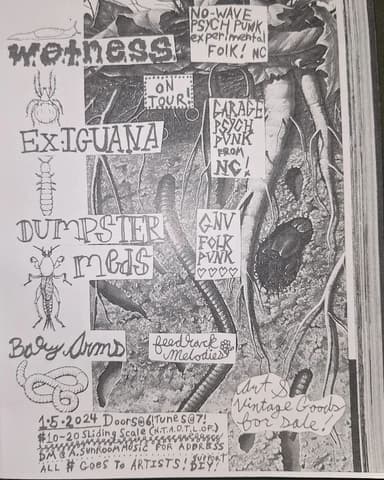 wetness
NO-WAVE
PSYCH PUNK
experimental
FOLK! NC
ON
TOUR!
EX-IGUANA
GARAGE
PSYCH
PUNK
FROM
NC!
DUMPSTER
MEDS
GNV
FOLK
PUNK
♡♡♡♡
Baby Arms
feedback
Melodies
Art &
Vintage Goods
for Sale!
1-5-2024 Doors@6!Tunes@7!
$10-20 Sliding Scale (N.T.A.O.T.L.O.F.)
DM @A.SUNROOM MUSIC FOR ADDRESS
ALL $ GOES TO ARTISTS! SUPPORT DIY!